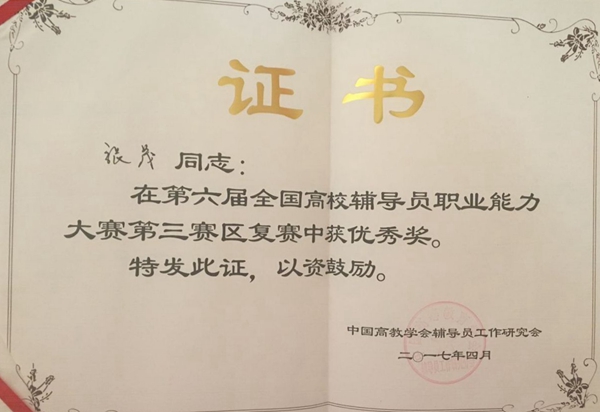 证书
张茂 同志：
在第六届全国高校辅导员职业能力
大赛第三赛区复赛中获优秀奖。
特发此证，以资鼓励。
中国高教学会辅导员工作研究会
二〇一七年四月